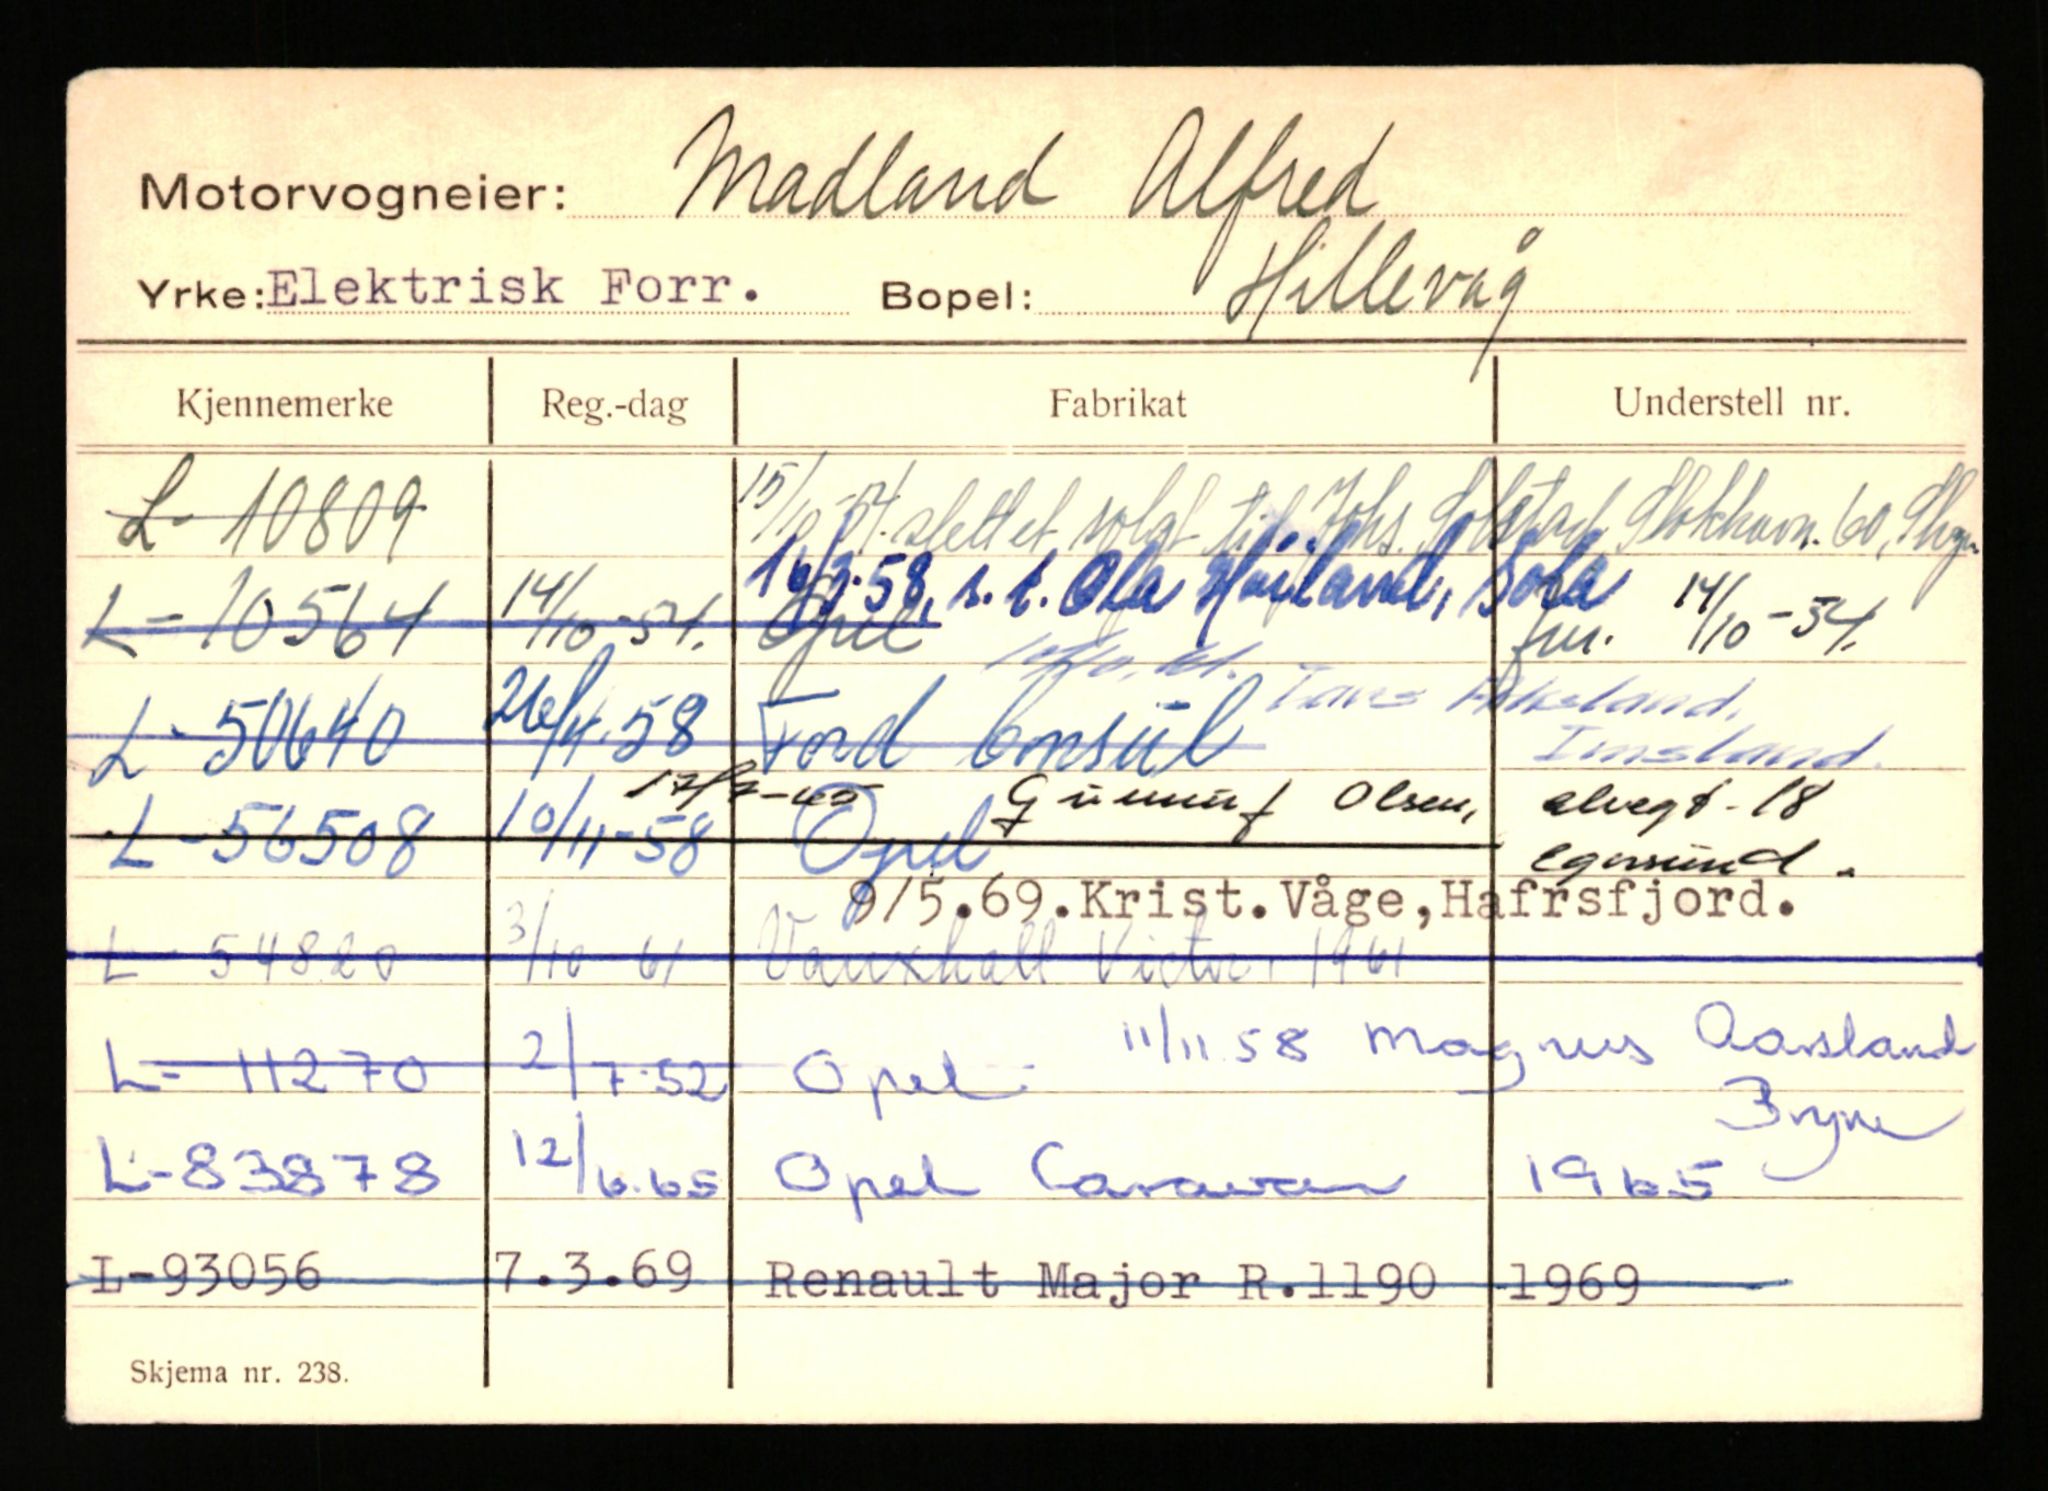 Motorvogneier: Madland Alfred
Yrke: Elektrisk Forr. Bopel: Hillevåg
Kjennemerke Reg.-dag Fabrikat Understell nr.
L- 10809 15/10-54. slettet solgt til Johs. 60,
16/3.58. s. t. Ola Høiland, Sola
L- 10564 14/10-54. Opel 14/10-54.
L- 50640 26/4.58 Ford Consul Imsland.
17/7-65 Olsen, elvegt. 18
L-56508 10/11-58 Opel Egersund.
9/5.69.Krist.Våge,Hafrsfjord.
L- 54820 3/10 61 Vauxhall Victor. 1961
11/11 58 Magnus Aarsland
L- 11270 2/7.52 Opel
Bryne
L-83878 12/6.65 Opel Caravan 1965
L-93056 7.3.69 Renault Major R.1190 1969
Skjema nr. 238.